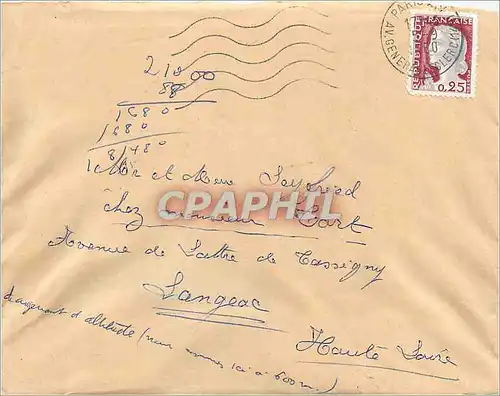 PARIS
AV. GENERAL LECLERC
REPUBLIQUE FRANÇAISE
0,25
21000
88
1680
1680
8/480
Mr et Mme Seyfried
chez monsieur Cart
Avenue de Lattre de Tassigny
Langeac
Haute Loire
changement d'altitude (nous sommes ici à 600 m.)
CPAPHIL